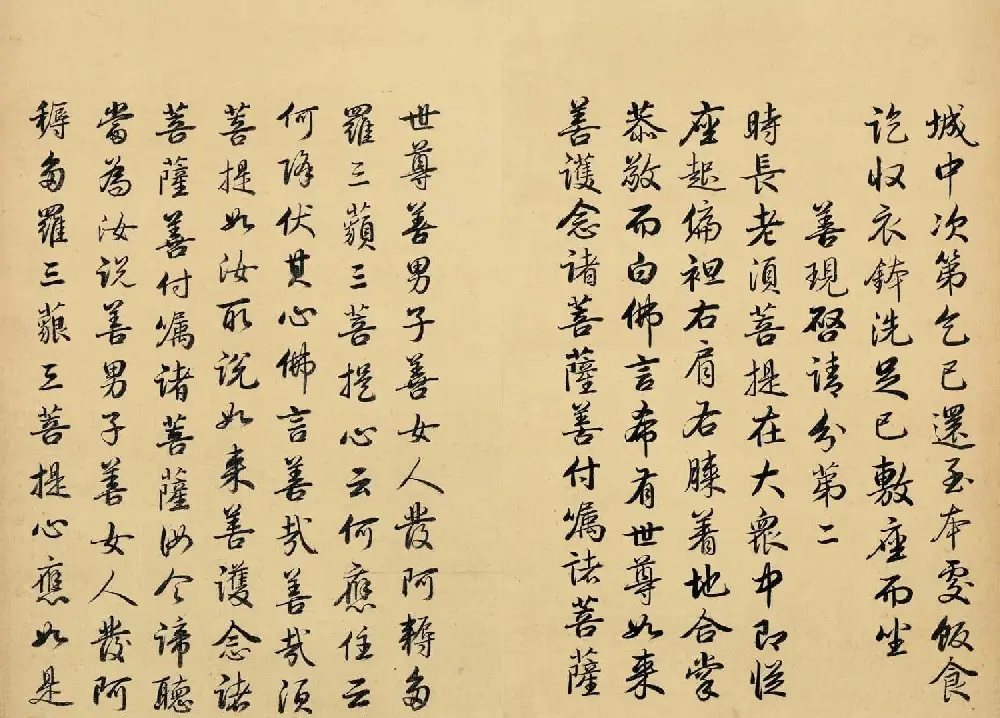 城中次第乞已還至本處飯食
訖收衣鉢洗足已敷座而坐
善現啓請分第二
時長老須菩提在大衆中即從
座起偏袒右肩右膝着地合掌
恭敬而白佛言希有世尊如来
善護念諸菩薩善付囑諸菩薩
世尊善男子善女人發阿耨多
羅三藐三菩提心云何應住云
何降伏其心佛言善哉善哉須
菩提如汝所説如来善護念諸
菩薩善付囑諸菩薩汝今諦聽
當為汝説善男子善女人發阿
耨多羅三藐三菩提心應如是